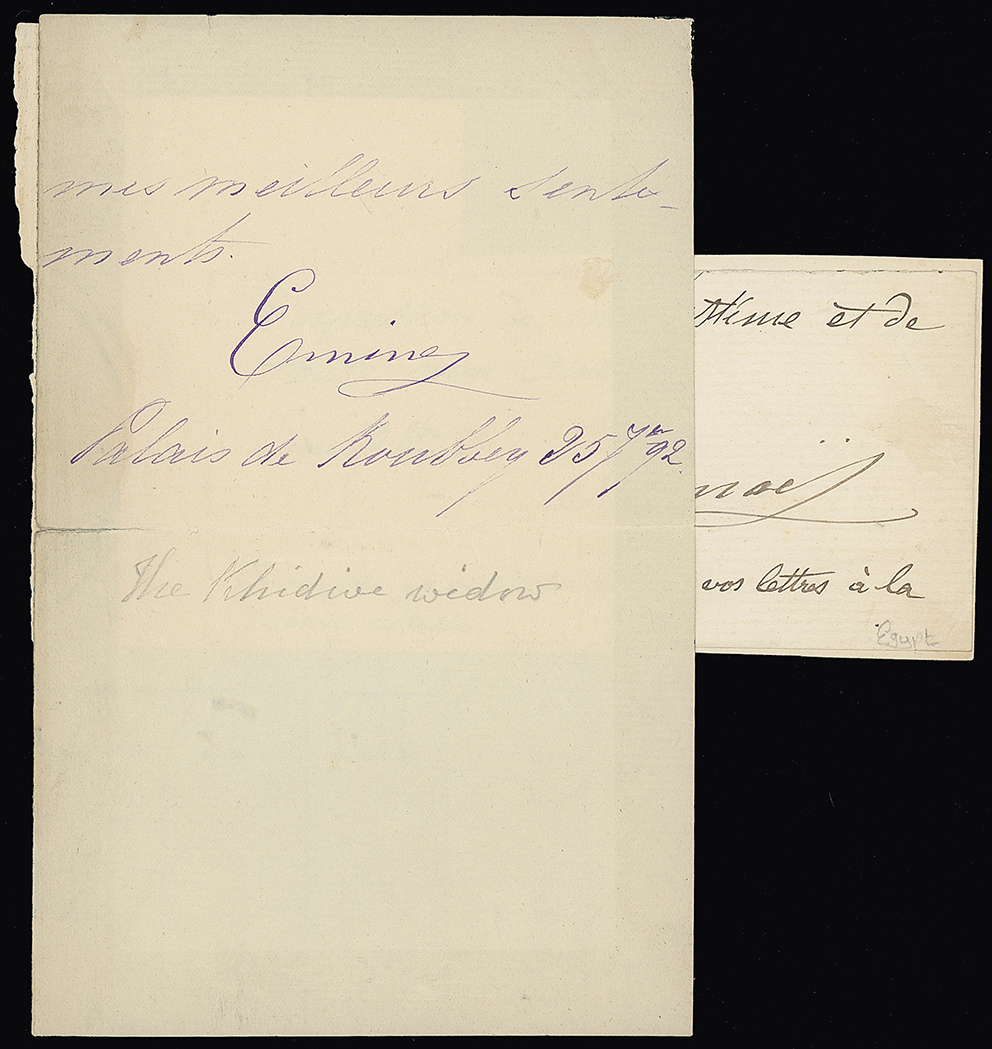 mes meilleurs senti-
ments.
Emine
Palais de Koubbey 25 7re 92.
The Khidive widow
et de
vos lettres à la
Egypt